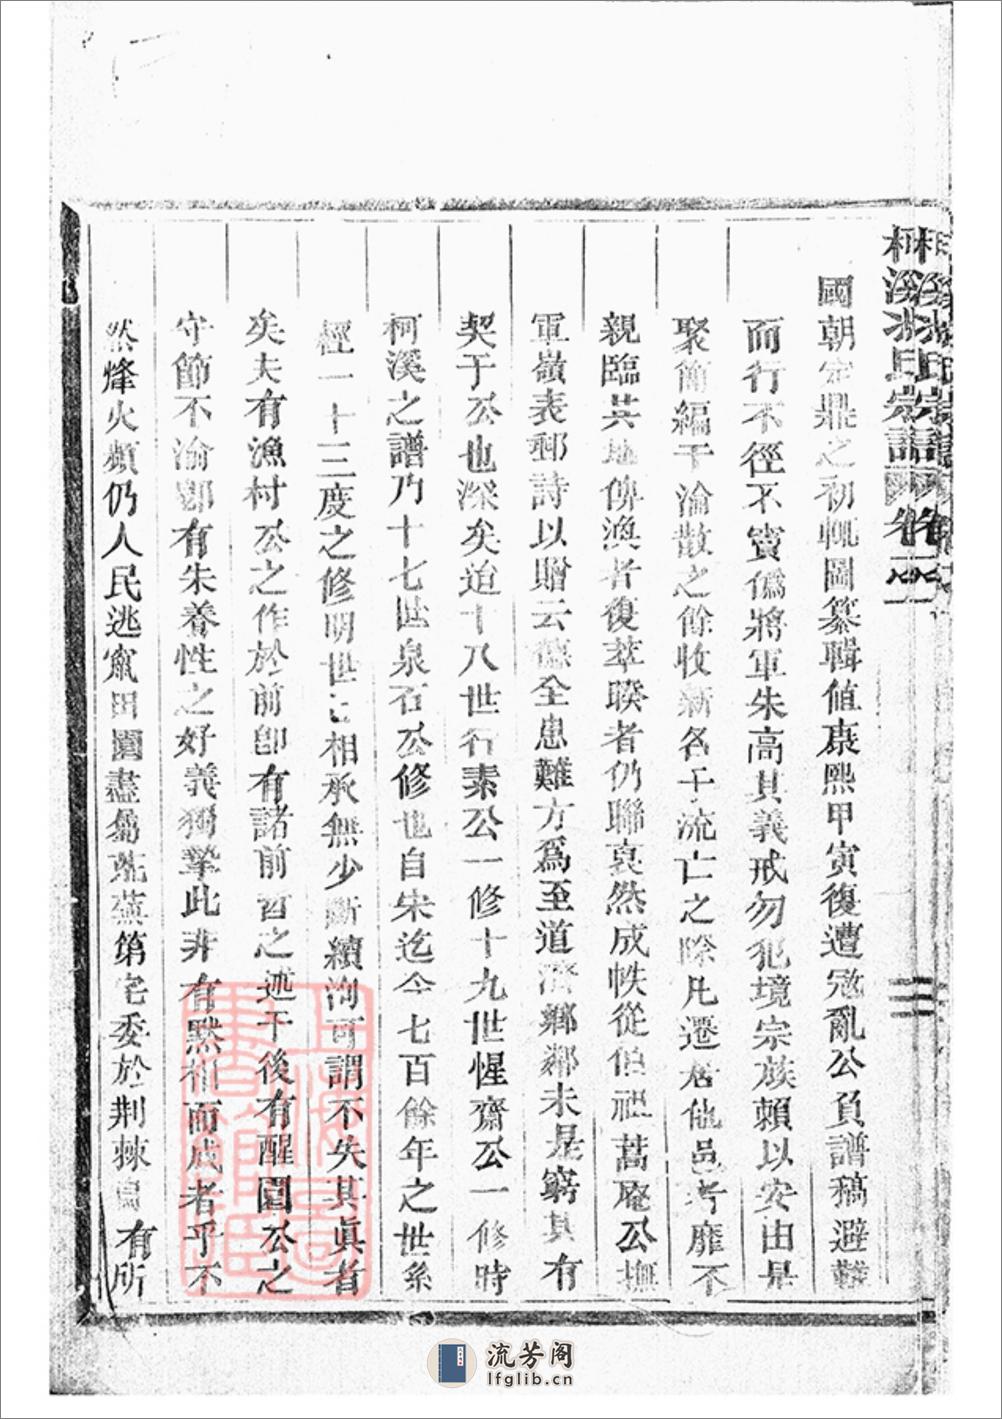 柯溪沈氏宗譜
國朝定鼎之初輒圖纂輯值康熙甲寅復遭寇亂公負譜稿避難
而行不徑不竇偽將軍朱高其義戒勿犯境宗族賴以安由是
聚簡編于淪散之餘收新名于流亡之際凡遷居他邑者靡不
親臨其地俾渙者復萃睽者仍聯裒然成帙從伯祖蒿庵公撫
軍嶺表郵詩以贈云德全患難方為至道濟鄉鄰未是窮其有
契于公也深矣迨十八世行素公一修十九世惺齋公一修時
柯溪之譜乃十七世泉石公修也自宋迄今七百餘年之世系
經一十三度之修明世相承無少斷續洵可謂不失其眞者
矣夫有漁村公之作於前卽有諸前哲之述于後有醒園公之
守節不渝鄧有朱養性之好義獨摯此非有默相而成者乎不
然烽火頻仍人民逃竄田園盡蕪第宅委於荆棘有所
三
上海圖書館藏
流芳阁
lfglib.cn